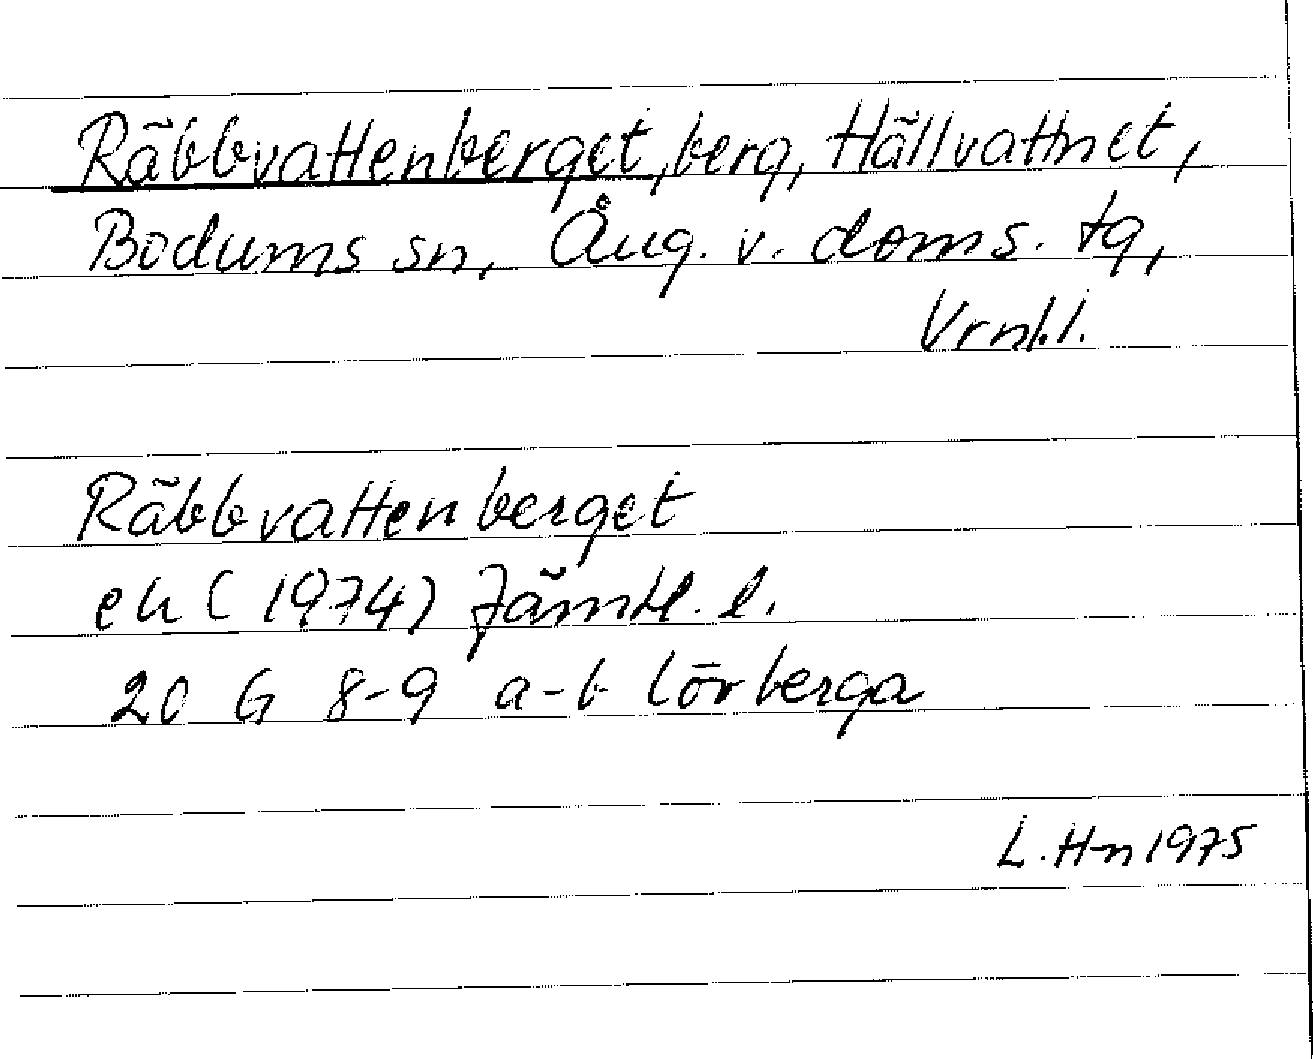 Räbbvattenberget, berg, Hällvattnet,
Bodums sn, Ång. v. doms. tg,
Vrnl.l.
Räbbvattenberget
ek (1974) Jämtl. l.
20 G 8-9 a-b Lövberga
L. H-n 1975